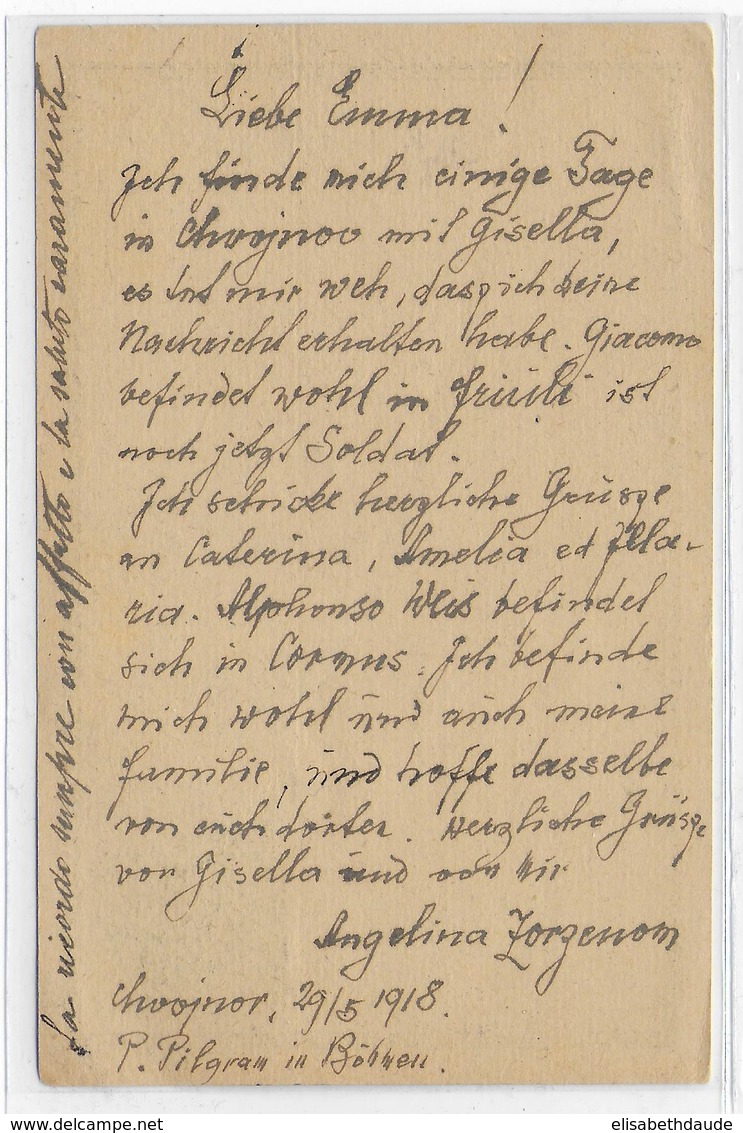 Liebe Emma!
Ich finde mich einige Tage
in Chvojnov mit Gisella,
es tut mir weh, daszich keine
Nachricht erhalten habe. Giacomo
befindet wohl in Friuli ist
noch jetzt Soldat.
Ich schicke herzliche Grüsze
an Caterina, Amelia ed Ila-
ria. Alphonso Weis befindet
sich in Cormons. Ich befinde
mich wohl und auch meine
Familie, und hoffe dasselbe
von euch dorten. Herzliche Grüsze
von Gisella und von mir
Angelina Zorzenom
Chvojnov, 29/5 1918.
P. Pilgram in Böhmen.
La ricordo sempre con affetto e la saluto caramente
elisabethdaude